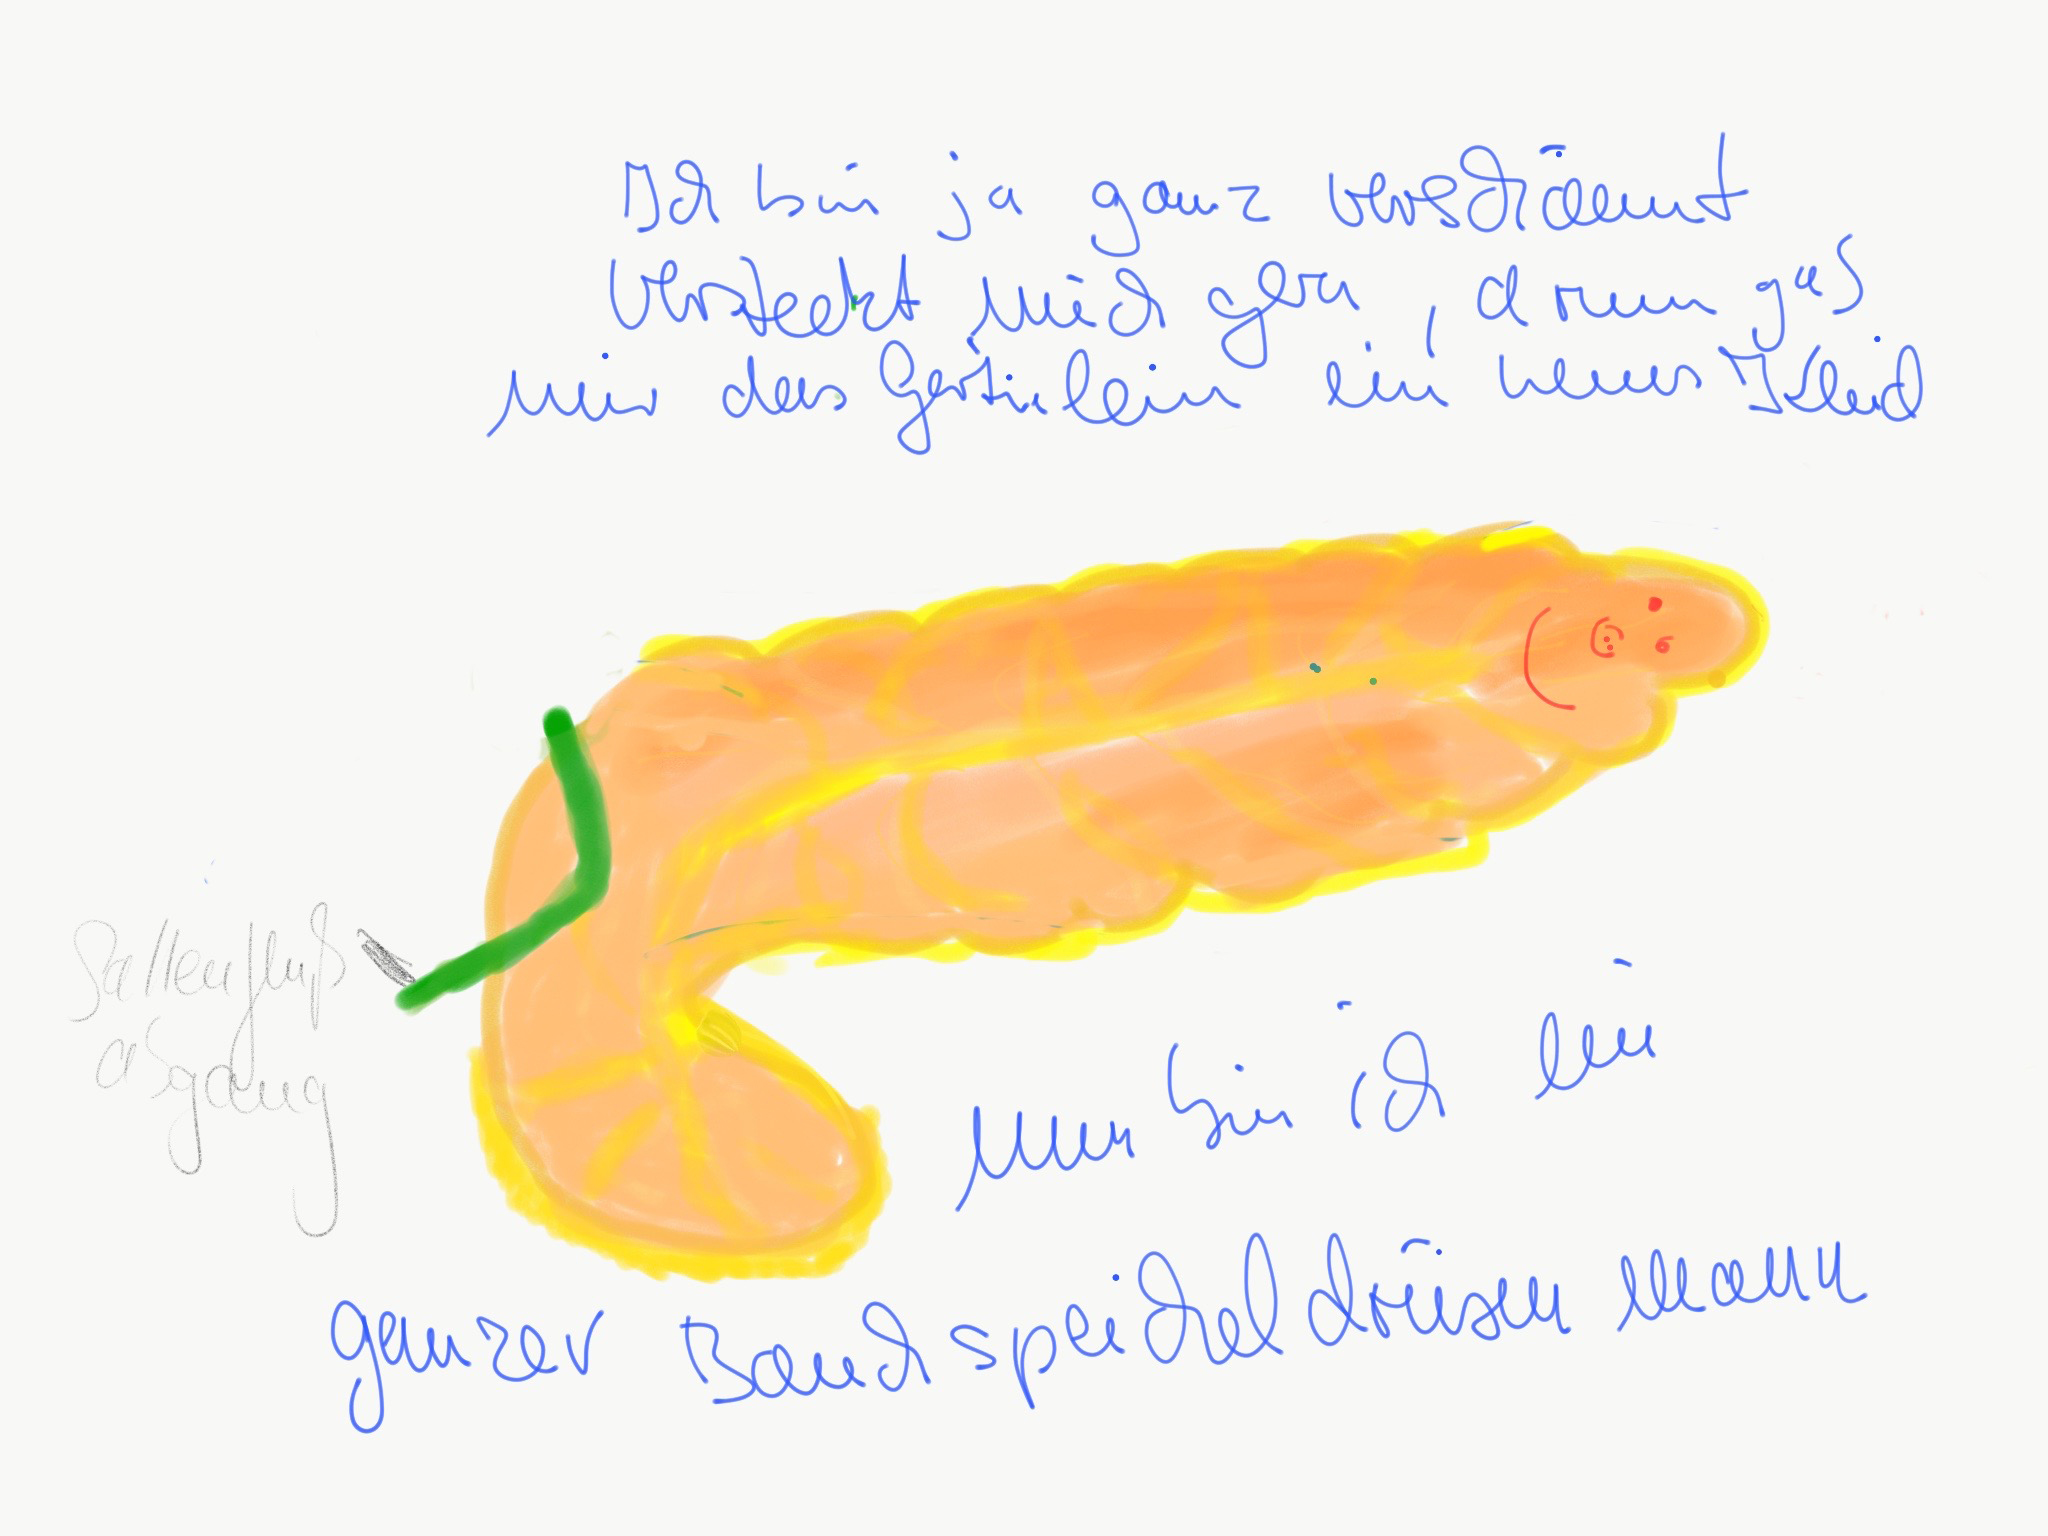 Ich bin ja ganz verschämt
versteckt mich gern, drum gab
mir das ein neues Kleid
Gallenfluß
abgang
Nun bin ich ein
ganzer Bauchspeicheldrüsen mann